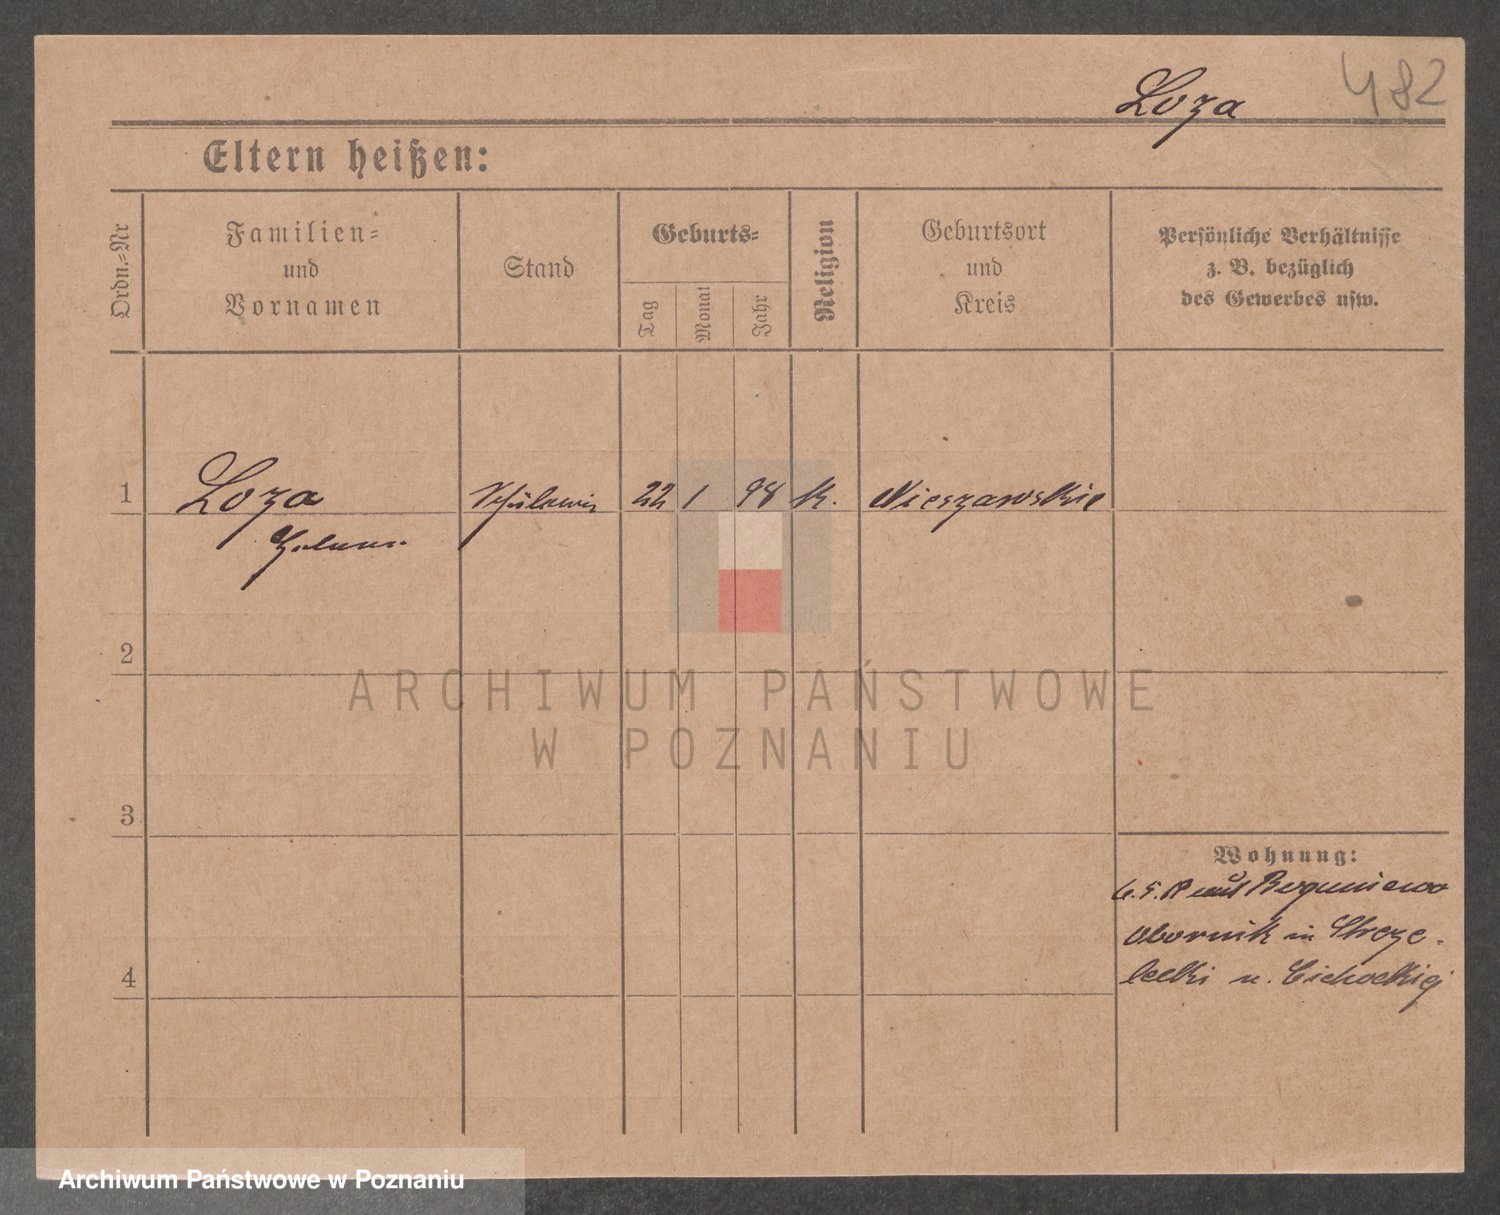 Loza 482
Eltern heißen:
Ordn.=Nr
Familien=
und
Vornamen
Stand
Geburts=
Tag
Monat
Jahr
Religion
Geburtsort
und
Kreis
Persönliche Verhältnisse
z. B. bezüglich
des Gewerbes usw.
1 Loza Schülerin 22 1 98 K. Nieszawskie
2
3
4
Wohnung:
aus
Obornik in Strze-
lecki u. Cichockiej
ARCHIWUM PAŃSTWOWE
W POZNANIU
Archiwum Państwowe w Poznaniu